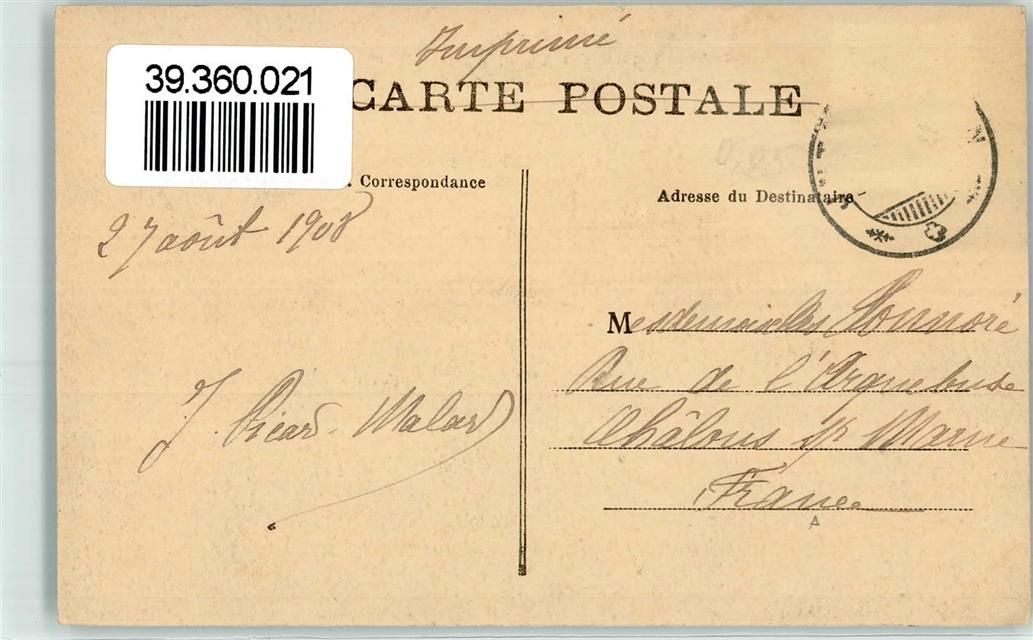 Imprimé
39.360.021
CARTE POSTALE
Correspondance
Adresse du Destinataire
27 août 1908
Mesdemoiselles Honnoré
Rue de l'Arquebuse
Châlons s/ Marne
France
J. Picard. Malard